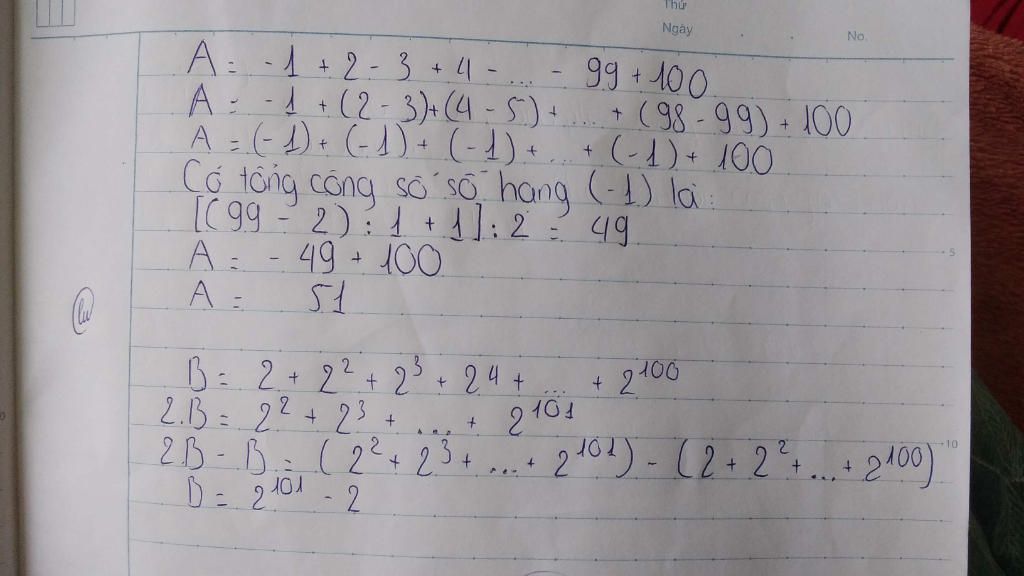 Thứ
Ngày . . No.
A = -1 + 2 - 3 + 4 - ... - 99 + 100
A = -1 + (2 - 3) + (4 - 5) + ... + (98 - 99) + 100
A = (-1) + (-1) + (-1) + ... + (-1) + 100
Có tổng cộng số số hạng (-1) là:
[(99 - 2) : 1 + 1] : 2 = 49
5
A = - 49 + 100
A = 51
B = 2 + 2² + 2³ + 2⁴ + ... + 2¹⁰⁰
2.B = 2² + 2³ + ... + 2¹⁰¹
10
2B - B = (2² + 2³ + ... + 2¹⁰¹) - (2 + 2² + ... + 2¹⁰⁰)
B = 2¹⁰¹ - 2